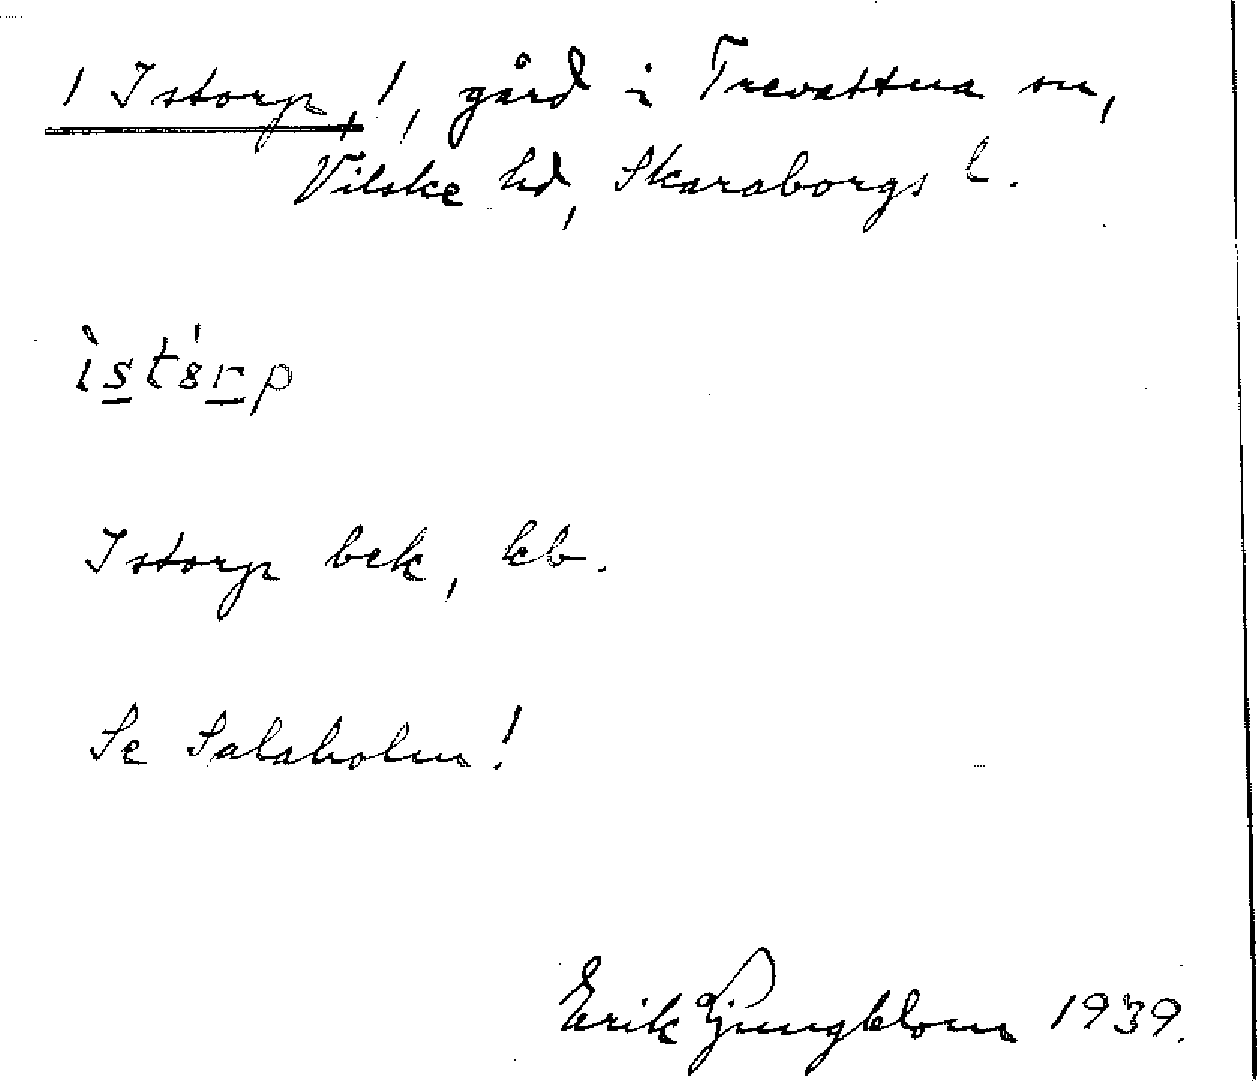 / Istorp, /, gård i Trevattna sn,
Vilske hd, Skaraborgs l.
Istorp bek, kb.
Se Salaholm!
Erik Ljungblom 1939.